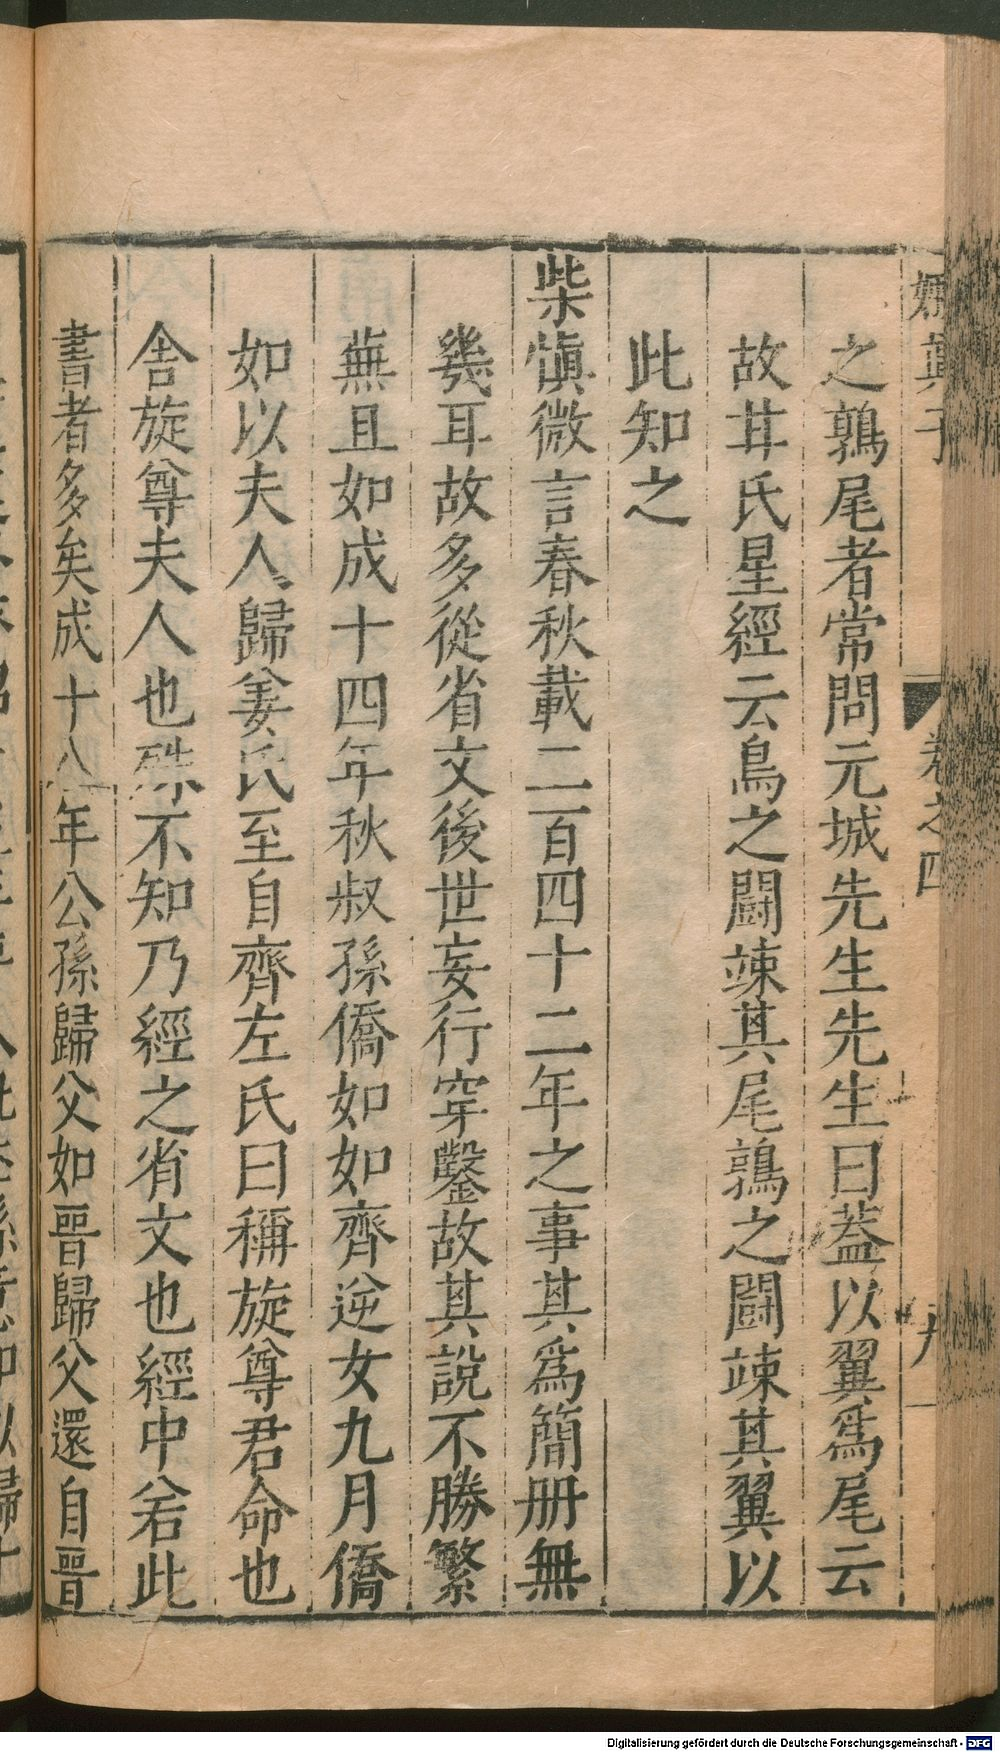 嬾眞子
卷之四
九
之鶉尾者常問元城先生先生曰葢以翼爲尾云
故甘氏星經云鳥之鬭竦其尾鶉之鬭竦其翼以
此知之
柴愼微言春秋載二百四十二年之事其爲簡册無
幾耳故多從省文後世妄行穿鑿故其說不勝繁
蕪且如成十四年秋叔孫僑如如齊逆女九月僑
如以夫人歸姜氏至自齊左氏曰稱族尊君命也
舍族尊夫人也殊不知乃經之省文也經中若此
書者多矣成十八年公孫歸父如晋歸父還自晋
Digitalisierung gefördert durch die Deutsche Forschungsgemeinschaft - DFG